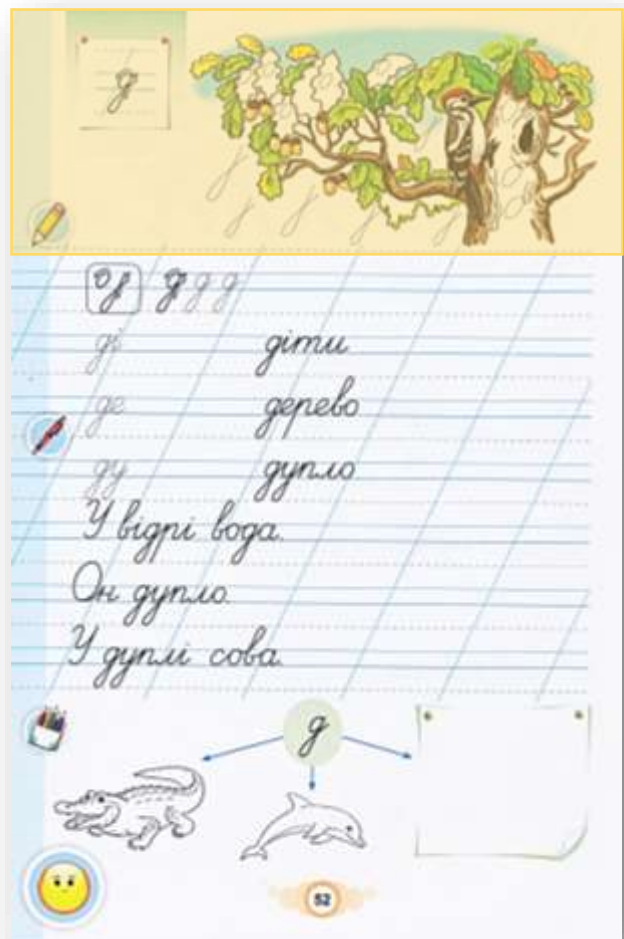 д д д
ді діти
де дерево
ду дупло
У відрі вода.
Он дупло.
У дуплі сова.
д
52